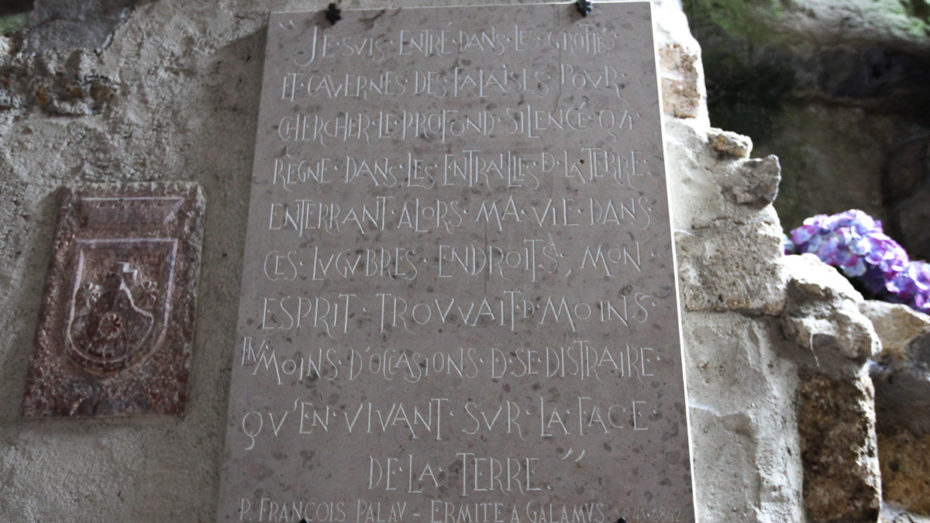 “JE·SUIS·ENTRÉ·DANS·LES·GROTTES
ET·CAVERNES·DES·FALAISES·POUR·
CHERCHER·LE·PROFOND·SILENCE·QUI·
RÈGNE·DANS·LES·ENTRAILLES·D·LA·TERRE·
ENTERRANT·ALORS·MA·VIE·DANS·
CES·LUGUBRES·ENDROITS, MON·
ESPRIT·TROUVAIT·D·MOINS·
EN·MOINS·D'OCCASIONS·D·SE·DISTRAIRE·
QU'EN·VIVANT·SUR·LA·FACE·
DE·LA·TERRE.”
P. FRANÇOIS PALAU - ERMITE A GALAMUS